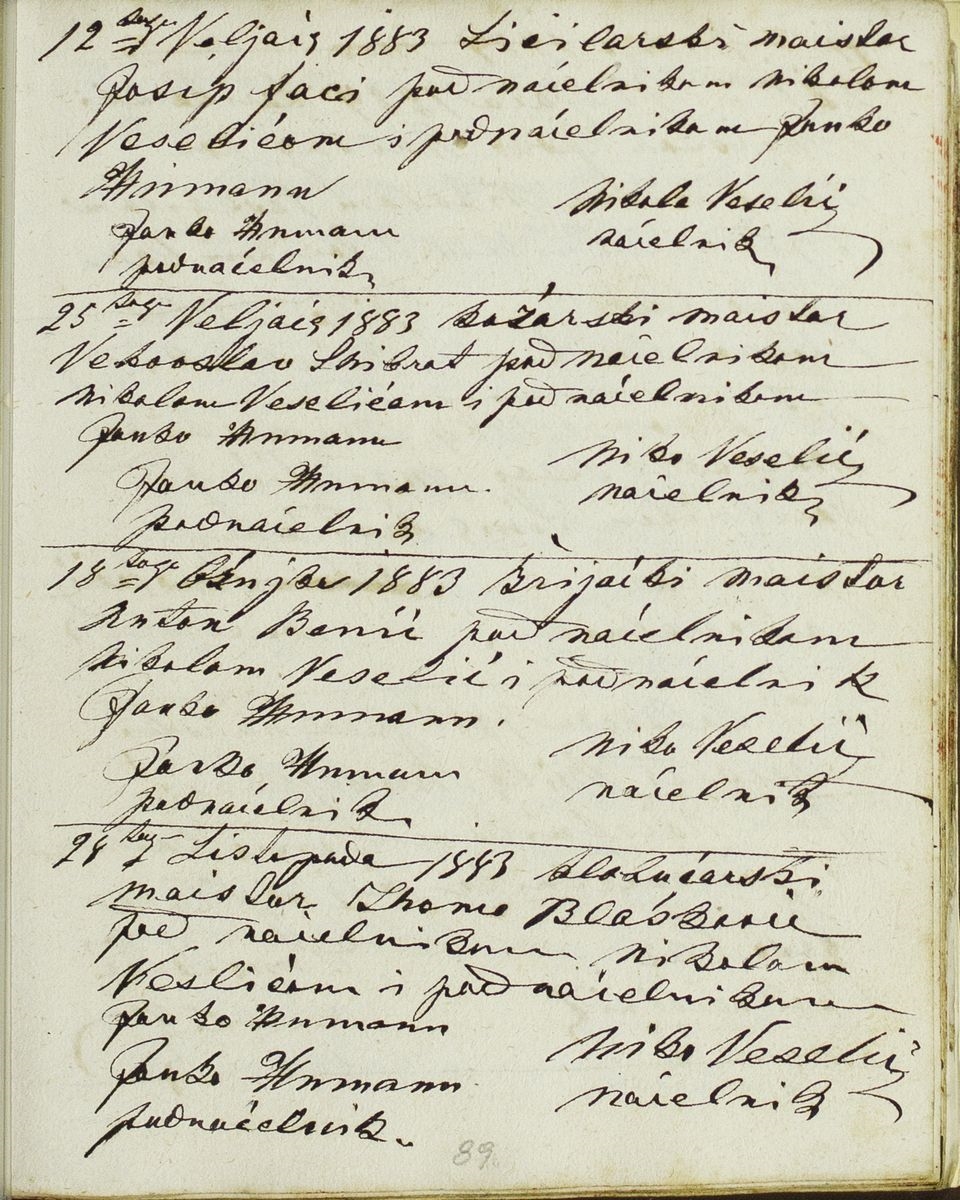 12 tog Veljače 1883 Licitarski maistor
Josip faci pod načelnikom Nikolom
Veselićom i podnáčelnikom Janko
Hnimann
Nikola Veselić
Janko Hnmann
náčelnik
podnačelnik
25 tog Veljače 1883 kožárski maistor
Vekoslav Shibrat pod náčelnikom
Nikolom Veselićom i podnáčelnikom
Janko Hnmann
Niko Veselić
Janko Hnmann
náčelnik
podnačelnik
18 tog 1883 Brijački maistor
Anton Benić pod náčelnikom
Nikolom Veselić i podnáčelnik
Janko Hnmann.
Niko Veselić
Janko Hnmann
náčelnik
podnačelnik.
Listopada 1883 klobučarski
maistor Thomo Blášković
pod náčelnikom Nikolom
Vesličom i podnačelnikom
Janko Hnmann
Niko Veselić
Janko Hnmann
náčelnik
podnáčelnik.
89.